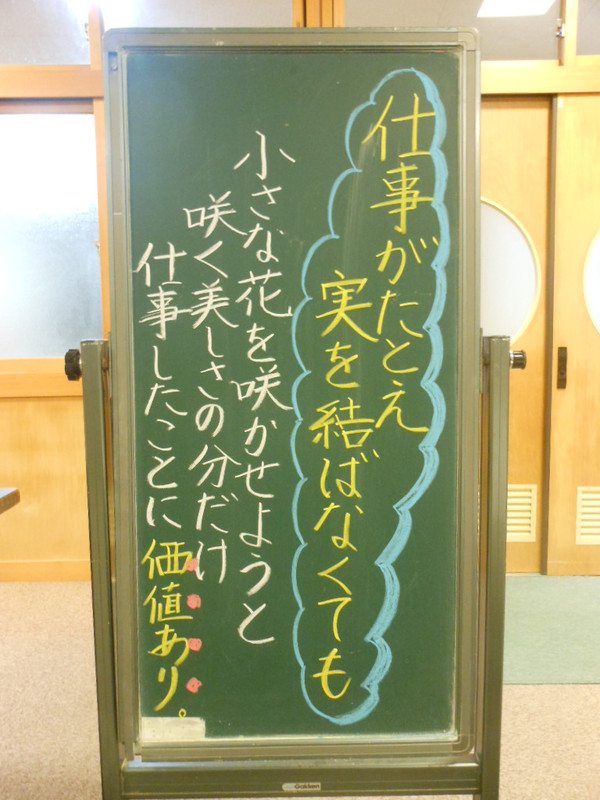 仕事がたとえ
実を結ばなくても
小さな花を咲かせようと
咲く美しさの分だけ
仕事したことに価値あり。
Gakken